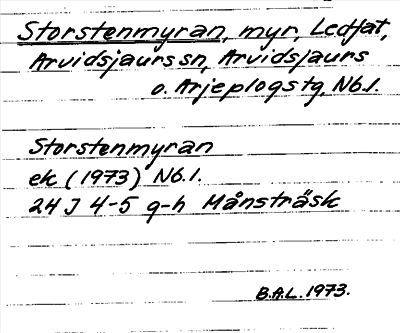 Storstenmyran, myr, Ledfat,
Arvidsjaurs sn, Arvidsjaurs
o. Arjeplogs tg, Nb.l.
Storstenmyran
ek (1973) Nb.l.
24 J 4-5 g-h Månsträsk
B.A.L. 1973.